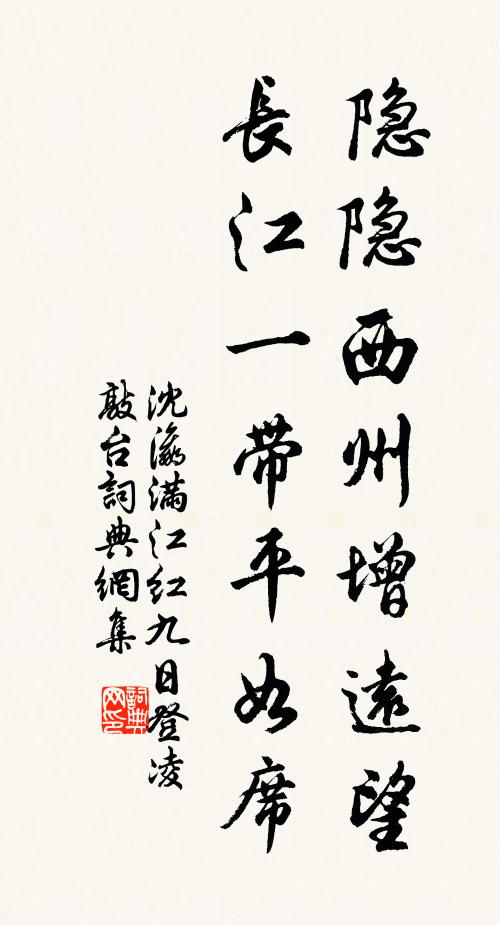 隐隐西州增遠望
長江一带平如席
沈瀛满江红九日登凌
敲台詞典網集
詞典网印